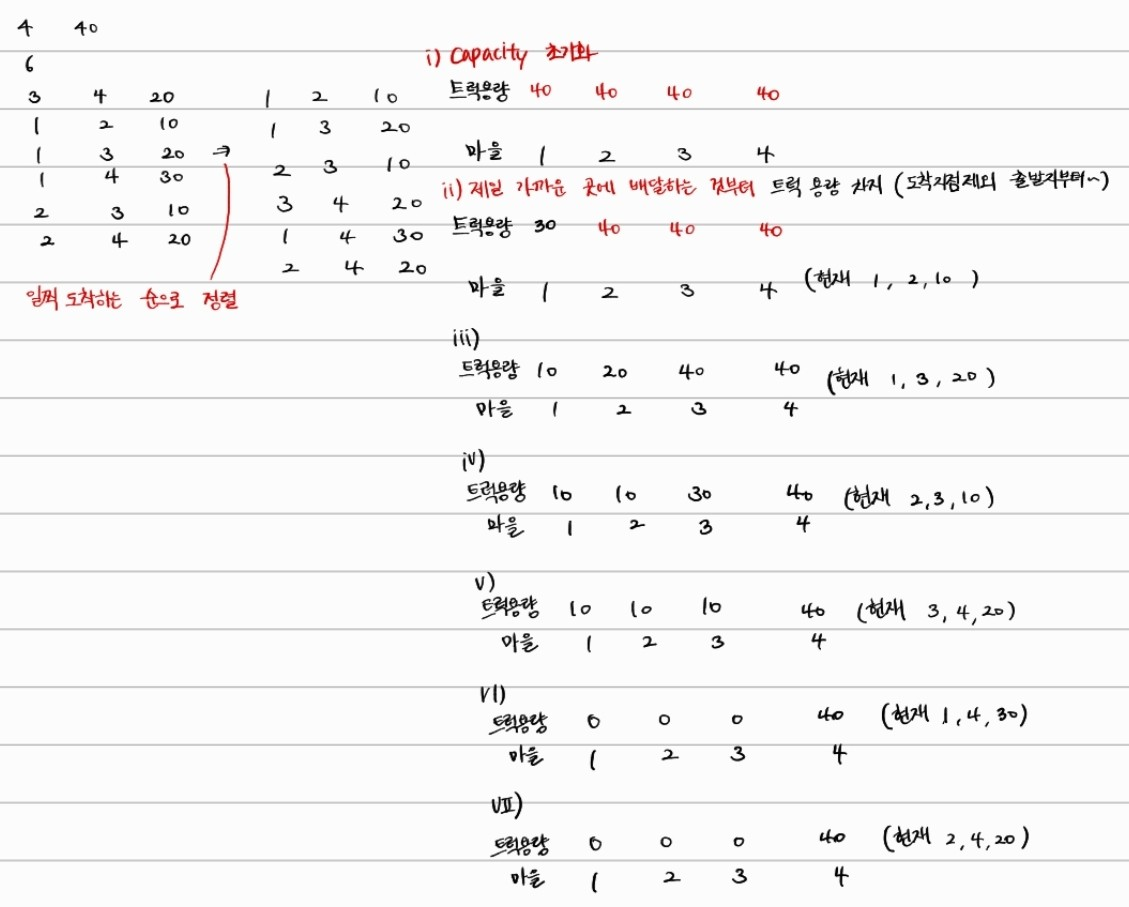 4 40
6
3 4 20
1 2 10
1 3 20 →
1 4 30
2 3 10
2 4 20
일찍 도착하는 순으로 정렬
1 2 10
1 3 20
2 3 10
3 4 20
1 4 30
2 4 20
i) Capacity 초기화
트럭용량 40 40 40 40
마을 1 2 3 4
ii) 제일 가까운 곳에 배달하는 것부터 트럭 용량 차지 (도착지점제외 출발지부터~)
트럭용량 30 40 40 40
마을 1 2 3 4 (현재 1, 2, 10 )
iii)
트럭용량 10 20 40 40 (현재 1, 3, 20 )
마을 1 2 3 4
iv)
트럭용량 10 10 30 40 (현재 2,3,10)
마을 1 2 3 4
v)
트럭용량 10 10 10 40 (현재 3, 4, 20)
마을 1 2 3 4
VI)
트럭용량 0 0 0 40 (현재 1, 4, 30)
마을 1 2 3 4
VII)
트럭용량 0 0 0 40 (현재 2, 4, 20)
마을 1 2 3 4